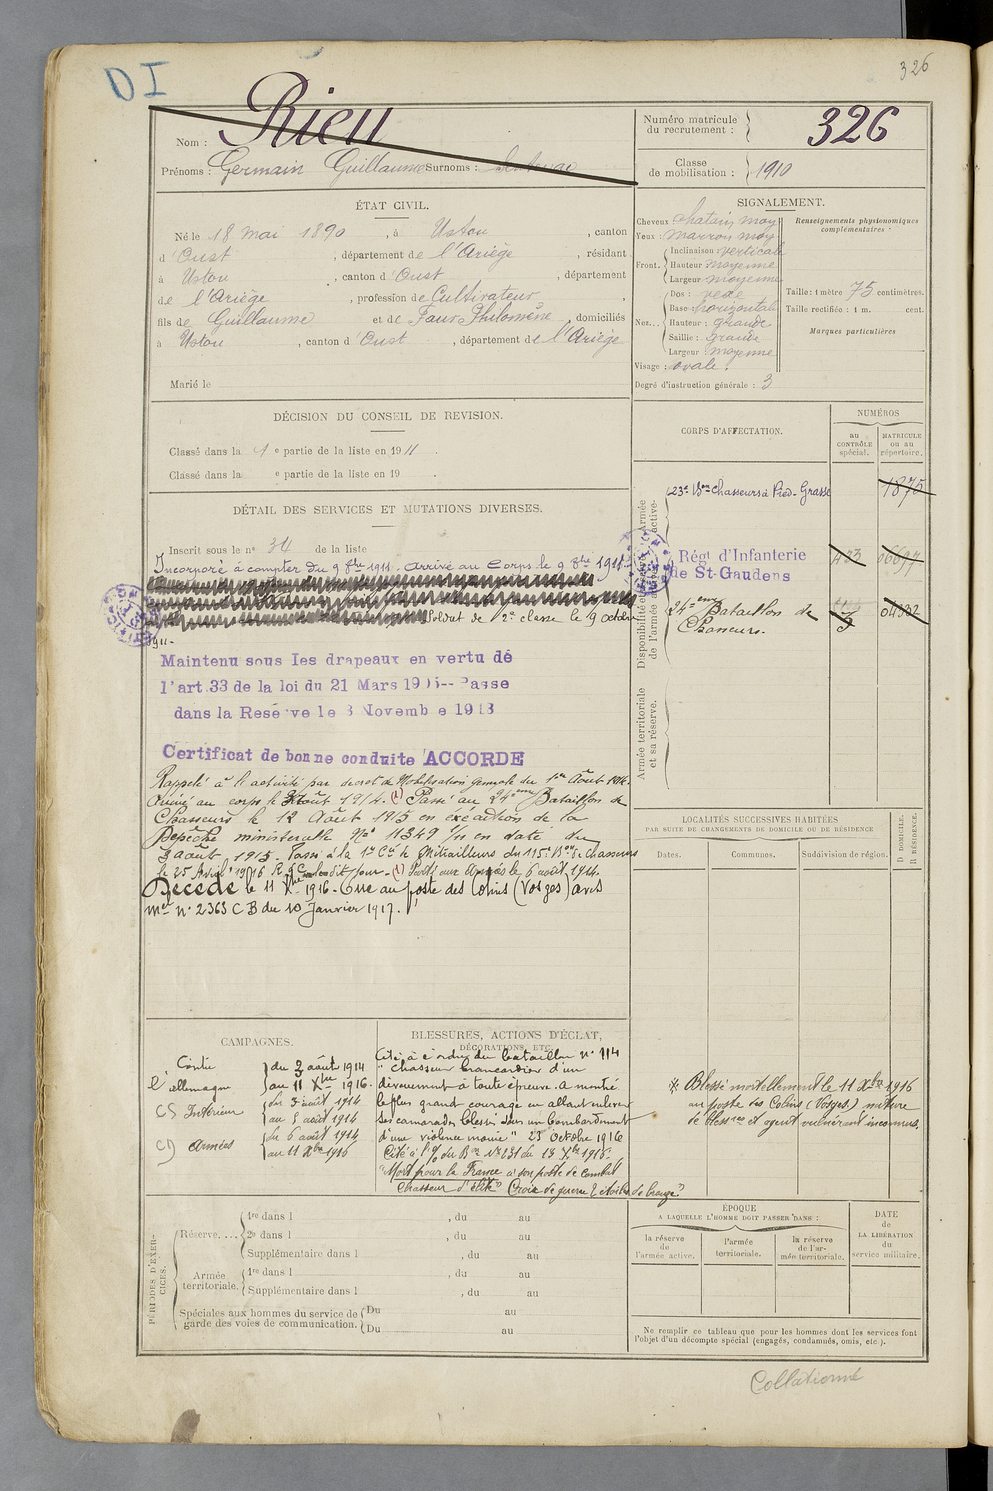 326
DI
Nom : Rieu
Prénoms : Germain Guillaume Surnoms :
Numéro matricule du recrutement : 326
Classe de mobilisation : 1910
ÉTAT CIVIL.
Né le 18 mai 1890, à Ustou, canton
d'Oust, département de l'Ariège, résidant
à Ustou, canton d'Oust, département
de l'Ariège, profession de Cultivateur,
fils de Guillaume et de Faur Philomène, domiciliés
à Ustou, canton d'Oust, département de l'Ariège
Marié le
SIGNALEMENT.
Cheveux chatain moy
Yeux : marron moy
Front. Inclinaison verticale
Hauteur moyenne
Largeur moyenne
Nez... Dos :
Base horizontale
Hauteur : grande
Saillie : grande
Largeur : moyenne
Visage : ovale.
Renseignements physionomiques complémentaires :
Taille : 1 mètre 75 centimètres.
Taille rectifiée : 1 m. cent.
Marques particulières
Degré d'instruction générale : 3
DÉCISION DU CONSEIL DE REVISION.
Classé dans la 1 e partie de la liste en 1911.
Classé dans la e partie de la liste en 19 .
DÉTAIL DES SERVICES ET MUTATIONS DIVERSES.
Inscrit sous le n° 34 de la liste
Incorporé à compter du 9 8bre 1911. Arrivé au Corps le 9 8bre 1911.
Soldat de 2e classe le 9 octobre
1911.
Maintenu sous les drapeaux en vertu de
l'art.33 de la loi du 21 Mars 1905-- Passe
dans la Reserve le 8 Novembre 1913
Certificat de bonne conduite ACCORDE
Rappelé à l'activité par décret de Mobilisation générale du 1er Août 1914.
Arrivé au corps le 3 Août 1914. (1) Passé au 24eme Bataillon de
Chasseurs le 12 Août 1915 en exécution de la
Dépêche ministérielle No 11349 1/11 en date du
3 août 1915. Passé à la 1re Cie de Mitrailleurs du 115e Bon de Chasseurs
le 25 Avril 1916 dit jour - (1) Parti aux Armées le 6 août 1914.
Décédé le 11 Xbre 1916. Tué au poste des Colins (Vosges) avis
Mel n° 2363 C B du 10 Janvier 1917.
CORPS D'AFFECTATION.
NUMÉROS
au CONTRÔLE spécial.
MATRICULE ou au répertoire.
Armée active.
Disponibilité et réserve de l'armée active.
Armée territoriale et sa réserve.
23e Bon Chasseurs à Pied - Grasse 1875
Régt d'Infanterie de St-Gaudens 433 06697
24eme Bataillon de Chasseurs. 04332
LOCALITÉS SUCCESSIVES HABITÉES
PAR SUITE DE CHANGEMENTS DE DOMICILE OU DE RÉSIDENCE
Dates.
Communes.
Subdivision de région.
D DOMICILE.
R RÉSIDENCE.
CAMPAGNES.
Contre l'allemagne du 3 août 1914 au 11 Xbre 1916.
CS Intérieur du 3 août 1914 au 5 août 1914
CD Armées du 6 août 1914 au 11 Xbre 1916
BLESSURES, ACTIONS D'ÉCLAT, DÉCORATIONS, ETC.
Cité à l'ordre du bataillon n° 114
" Chasseur brancardier d'un
dévouement à toute épreuve. A montré
le plus grand courage en allant enlever
ses camarades blessés sous un bombardement
d'une violence inouie" 23 Octobre 1916
Cité à l'O/ du Bon No 231 du 13 Xbre 1916.
"Mort pour la France à son poste de combat
Chasseur d'élite" Croix de guerre 2 étoiles de bronze"
Blessé mortellement le 11 Xbre 1916
au poste des Colins (Vosges) nature
de blessures et agent vulnérant inconnus.
PÉRIODES D'EXERCICES.
Réserve.... 1re dans l , du au
2e dans l , du au
Supplémentaire dans l , du au
Armée territoriale. 1re dans l , du au
Supplémentaire dans l , du au
Spéciales aux hommes du service de garde des voies de communication. Du au
Du au
ÉPOQUE
A LAQUELLE L'HOMME DOIT PASSER DANS :
la réserve de l'armée active.
l'armée territoriale.
la réserve de l'armée territoriale.
DATE de LA LIBÉRATION du service militaire.
Ne remplir ce tableau que pour les hommes dont les services font
l'objet d'un décompte spécial (engagés, condamnés, omis, etc.).
Collationné